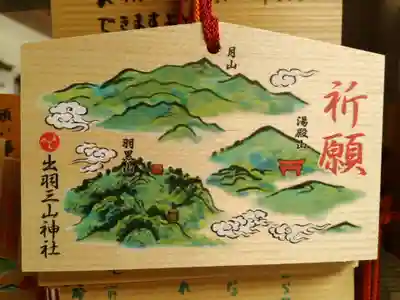 月山
祈願
湯殿山
羽黒山
出羽三山神社